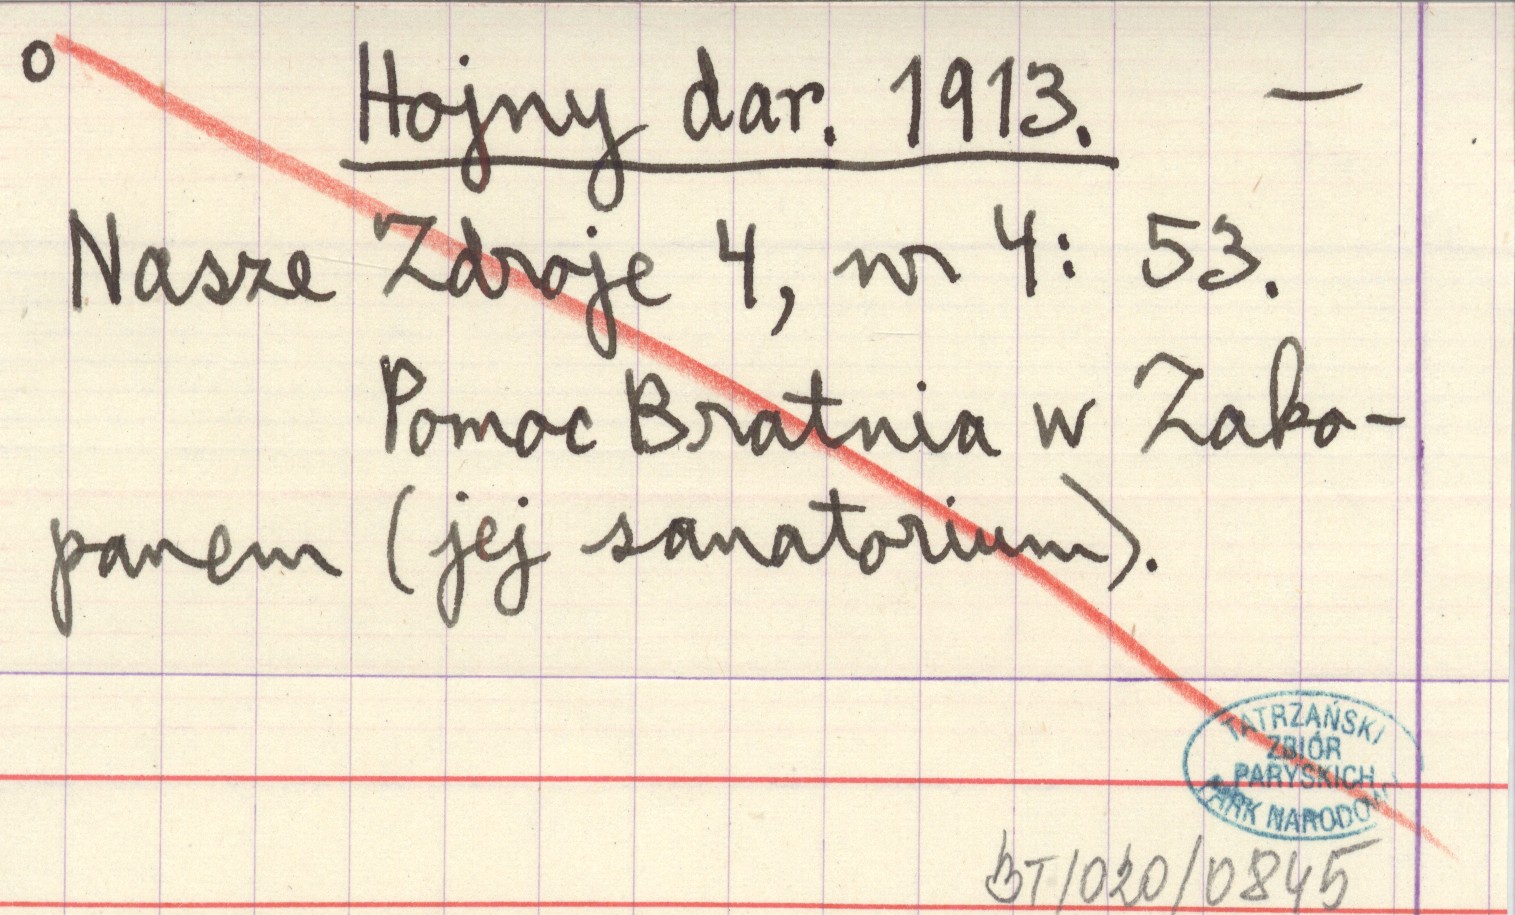 o Hojny dar. 1913. —
Nasze Zdroje 4, nr 4: 53.
Pomoc Bratnia w Zako-
panem (jej sanatorium).
TATRZAŃSKI
ZBIÓR
PARYSKICH
PARK NARODOWY
BT/020/0845